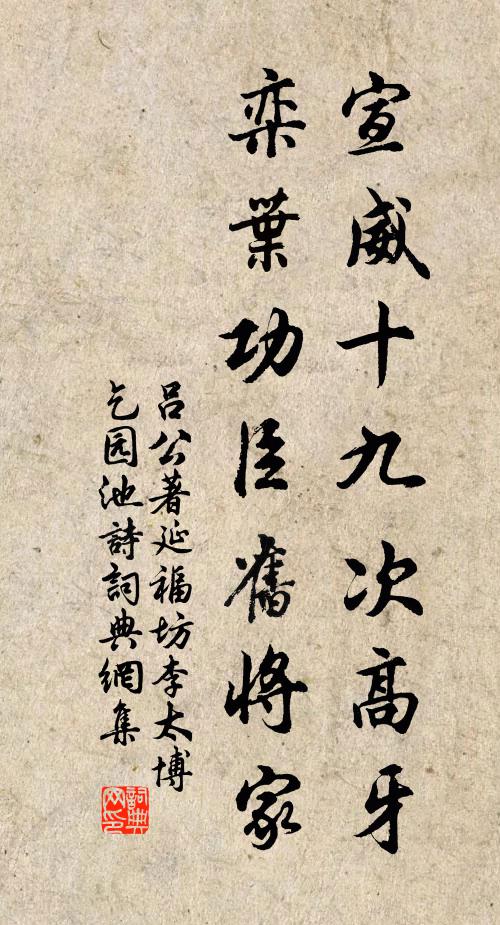 宣威十九次高牙
奕葉功臣舊將家
吕公著延福坊李太博
乞园池詩詞典網集
詞典
网印